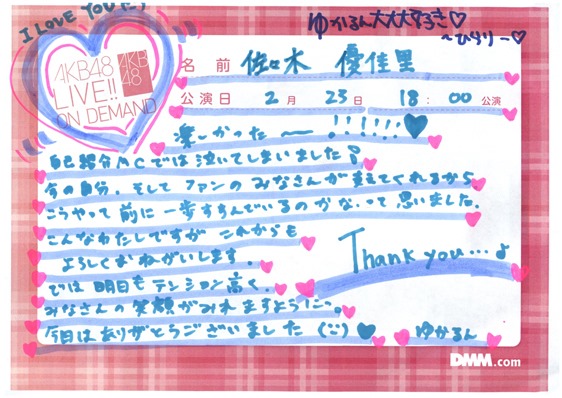 I LOVE YOU
ゆかるん大大大好き♡
～ひらりー♡
AKB48
LIVE!!
ON DEMAND
AKB
48
名前 佐々木 優佳里
公演日 2月 23日 18:00公演
楽しかった〜!!!!!!♥
自己紹介MCでは泣いてしまいました!
今の自分、そして ファンの みなさんが支えてくれるから
こうやって 前に 一歩すすんでいるのかな、って 思いました.
こんなわたしですが これからも
よろしくおねがいします.
Thank you...♪
では 明日も テンション高く、
みなさんの 笑顔が みれますように.
今日は ありがとうございました (¨) ♥ ゆかるん
DMM.com